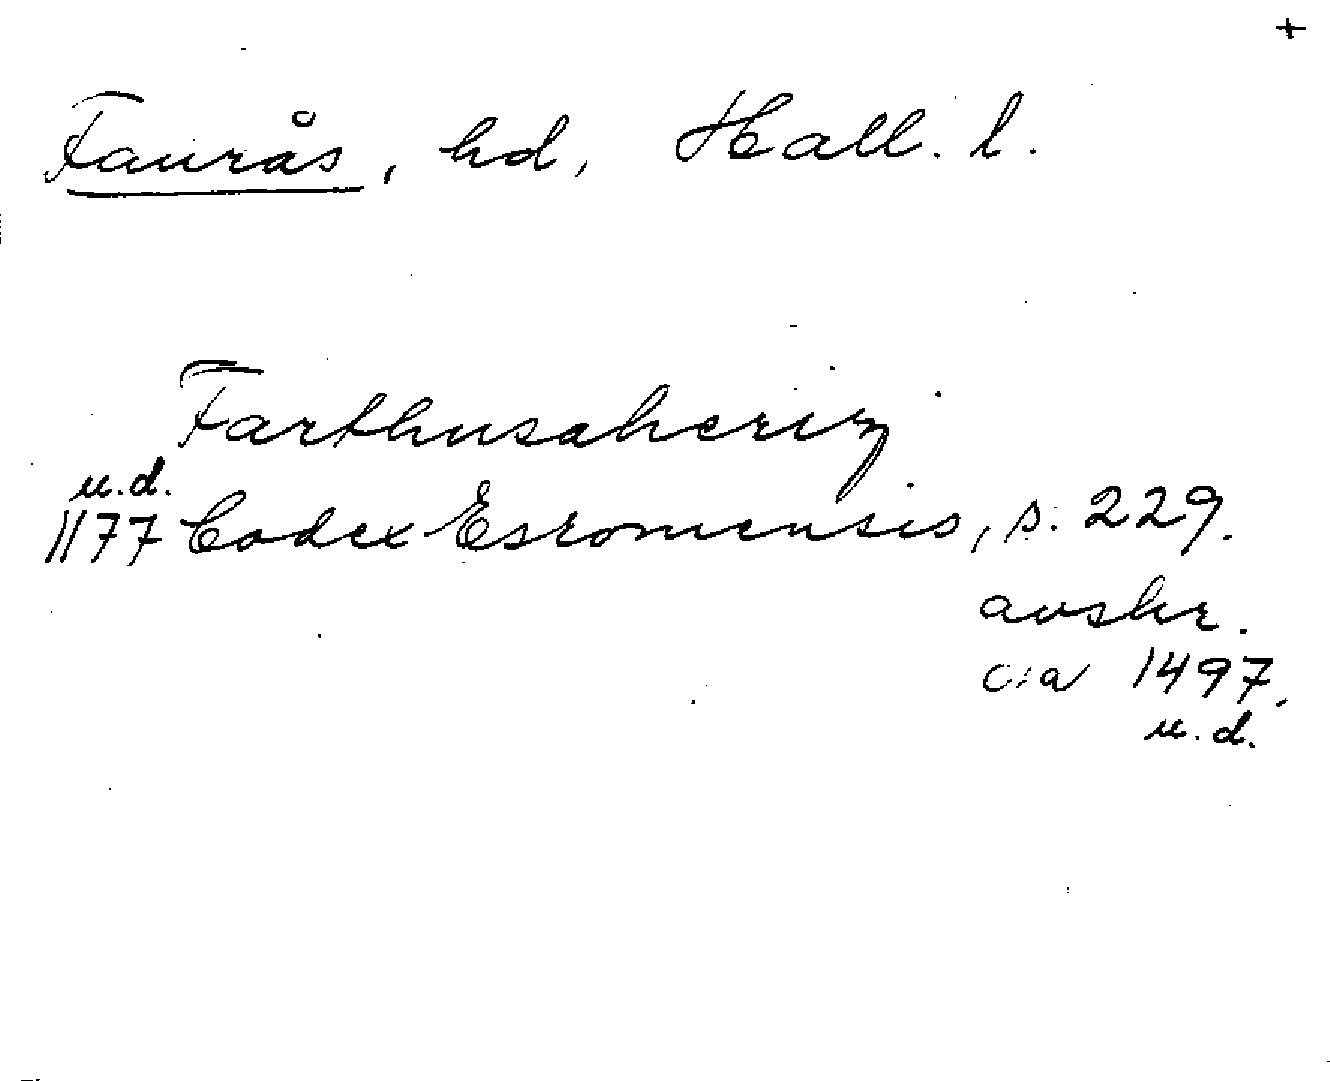 +
Faurås, hd, Hall. l.
Farthusaheriz
u.d.
1177 Codex Esromensis, s. 229.
avskr.
c:a 1497.
u.d.